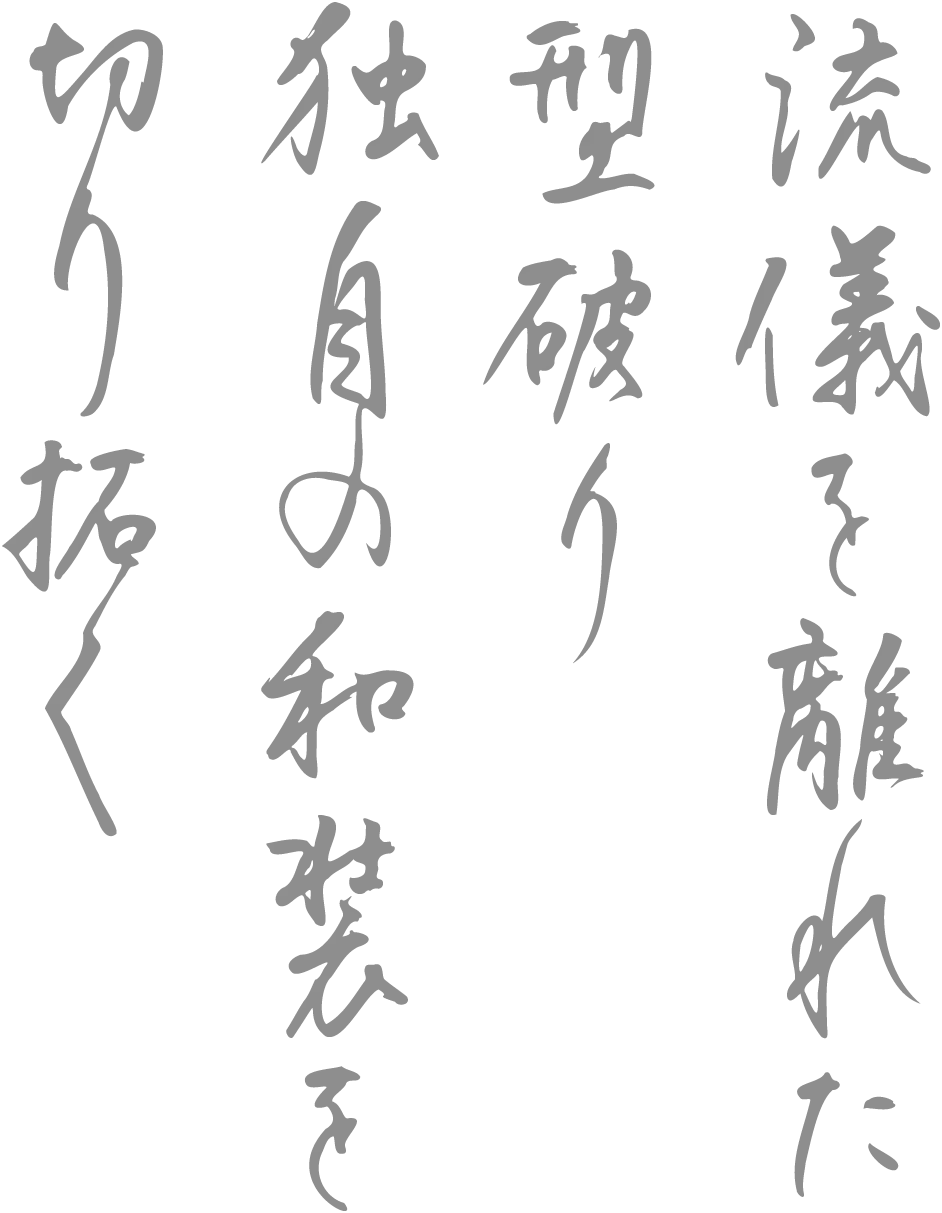 流儀を離れた
型破り
独自の和装を
切り拓く